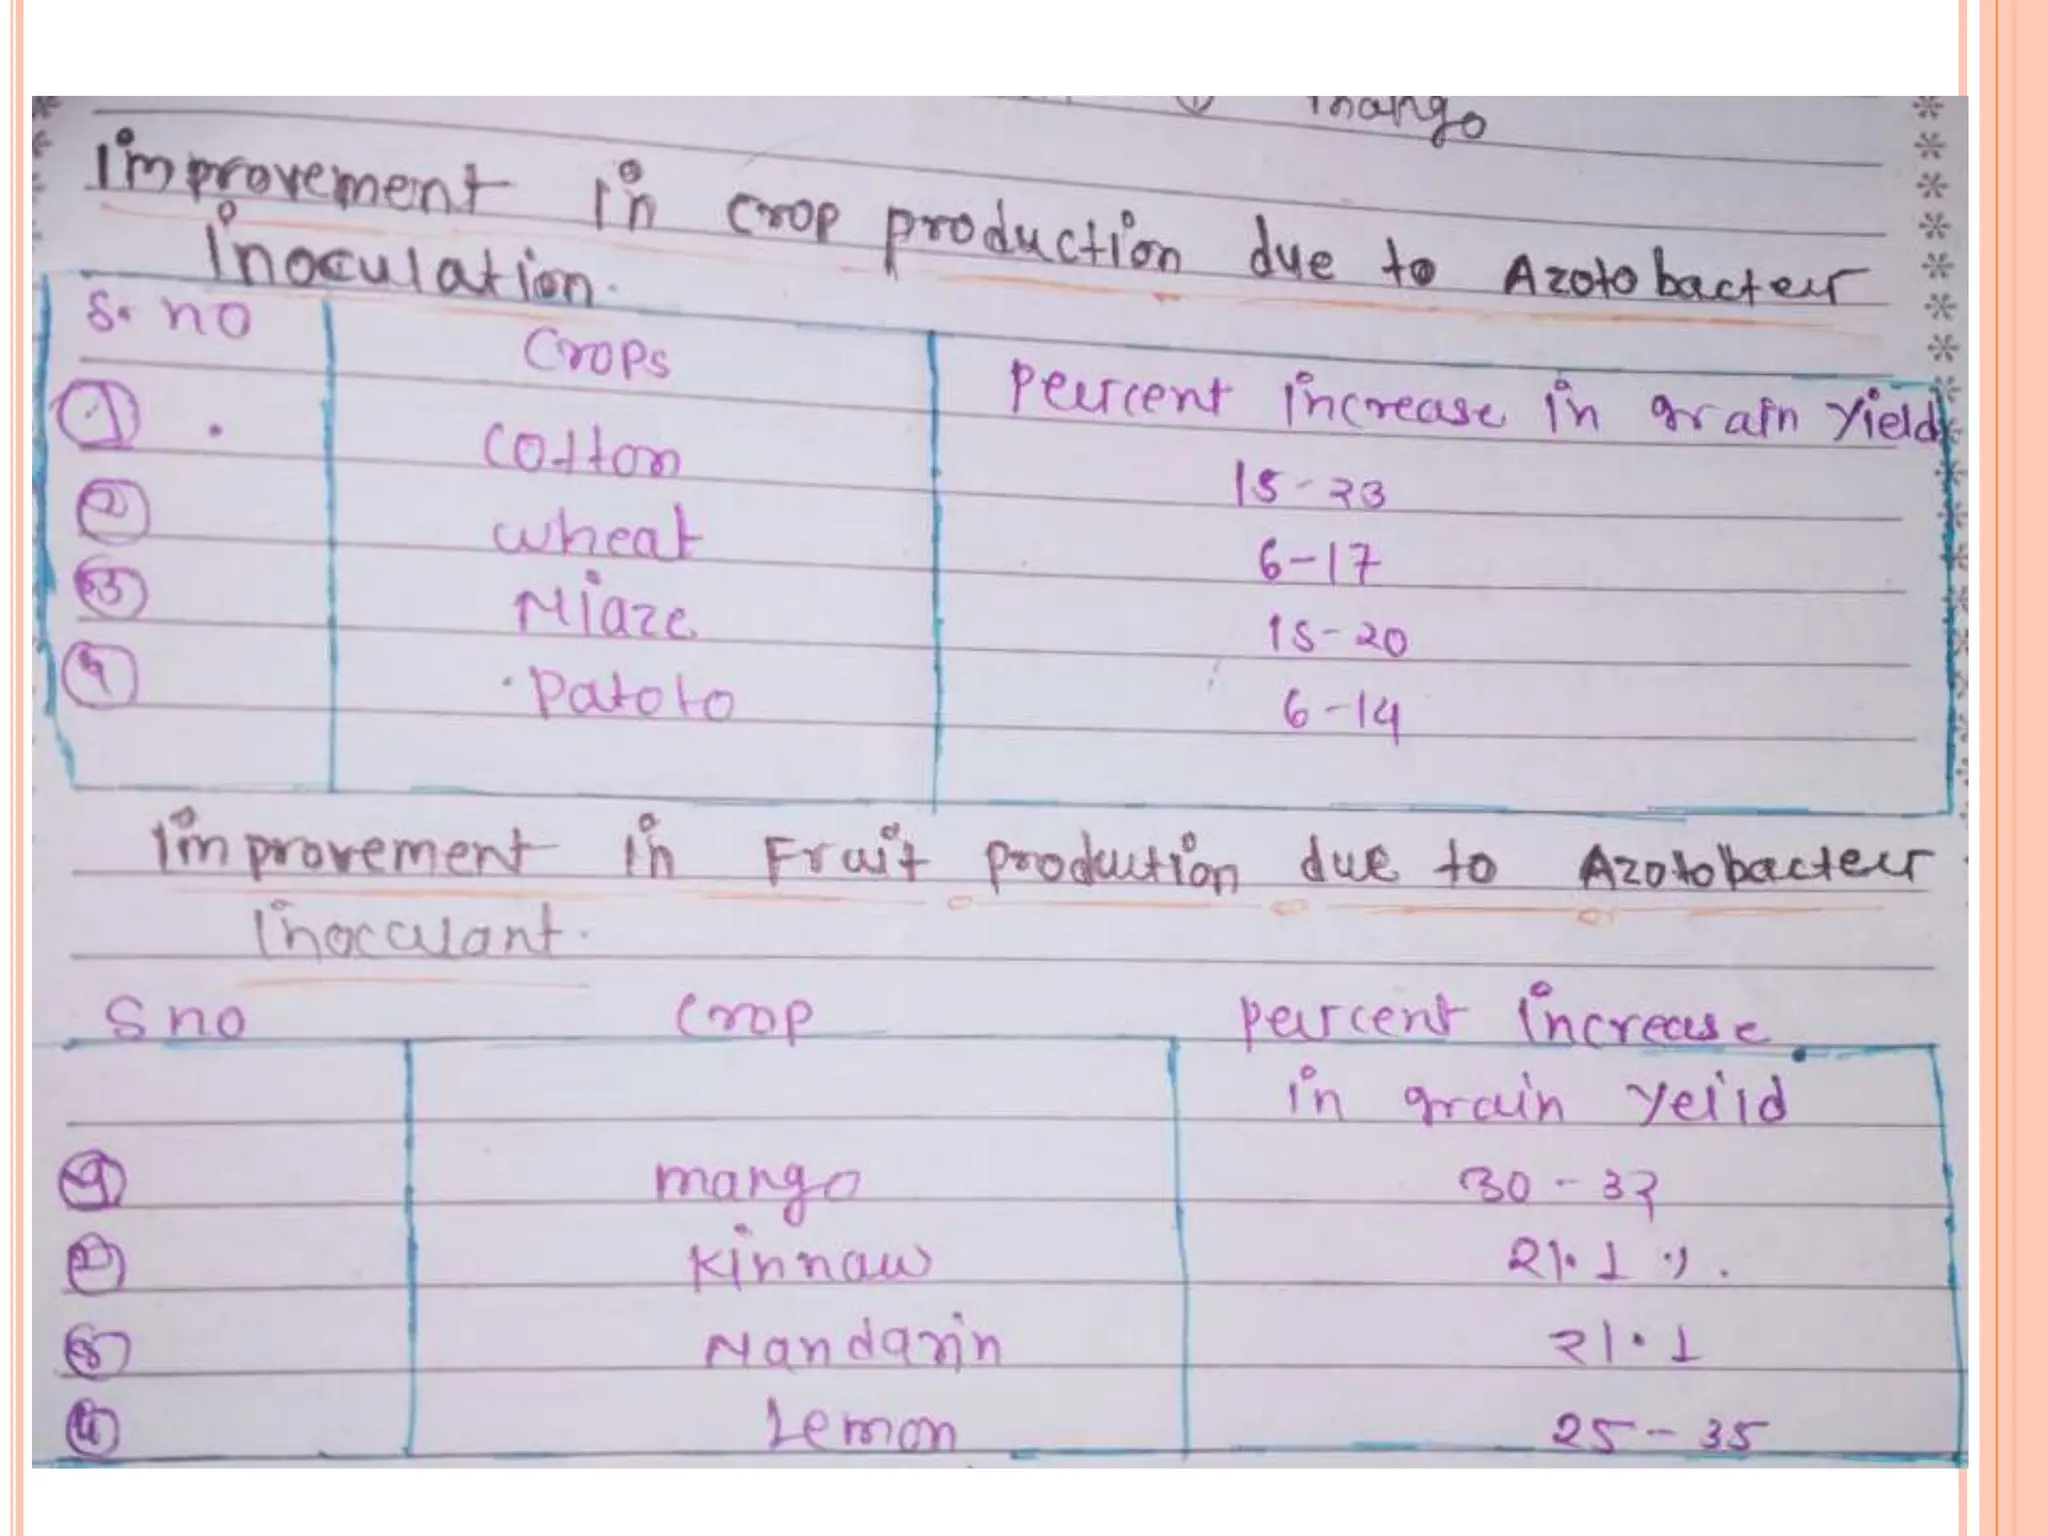 mango
Improvement in crop production due to Azotobacter
Inoculation.
S. no Crops Percent increase in grain Yield
1 . Cotton 15-23
2 wheat 6-17
3 Miaze 15-20
4 Patoto 6-14
Improvement in Fruit Prodcution due to Azotobacter
Inocculant.
S no Crop Percent increase
in grain Yeild
1 mango 30-32
2 Kinnaw 21.1 %.
3 Mandarin 21.1
4 Lemon 25-35